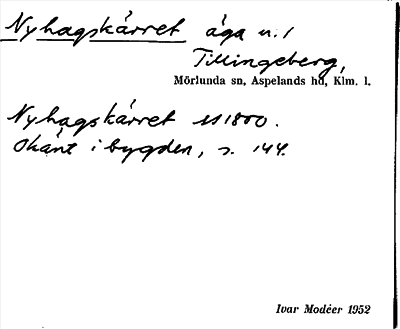 Nyhagskärret äga n. 1
Tillingeberg,
Mörlunda sn, Aspelands hd, Klm. l.
Nyhagskärret 1800.
Okänt i bygden, s. 144.
Ivar Modéer 1952